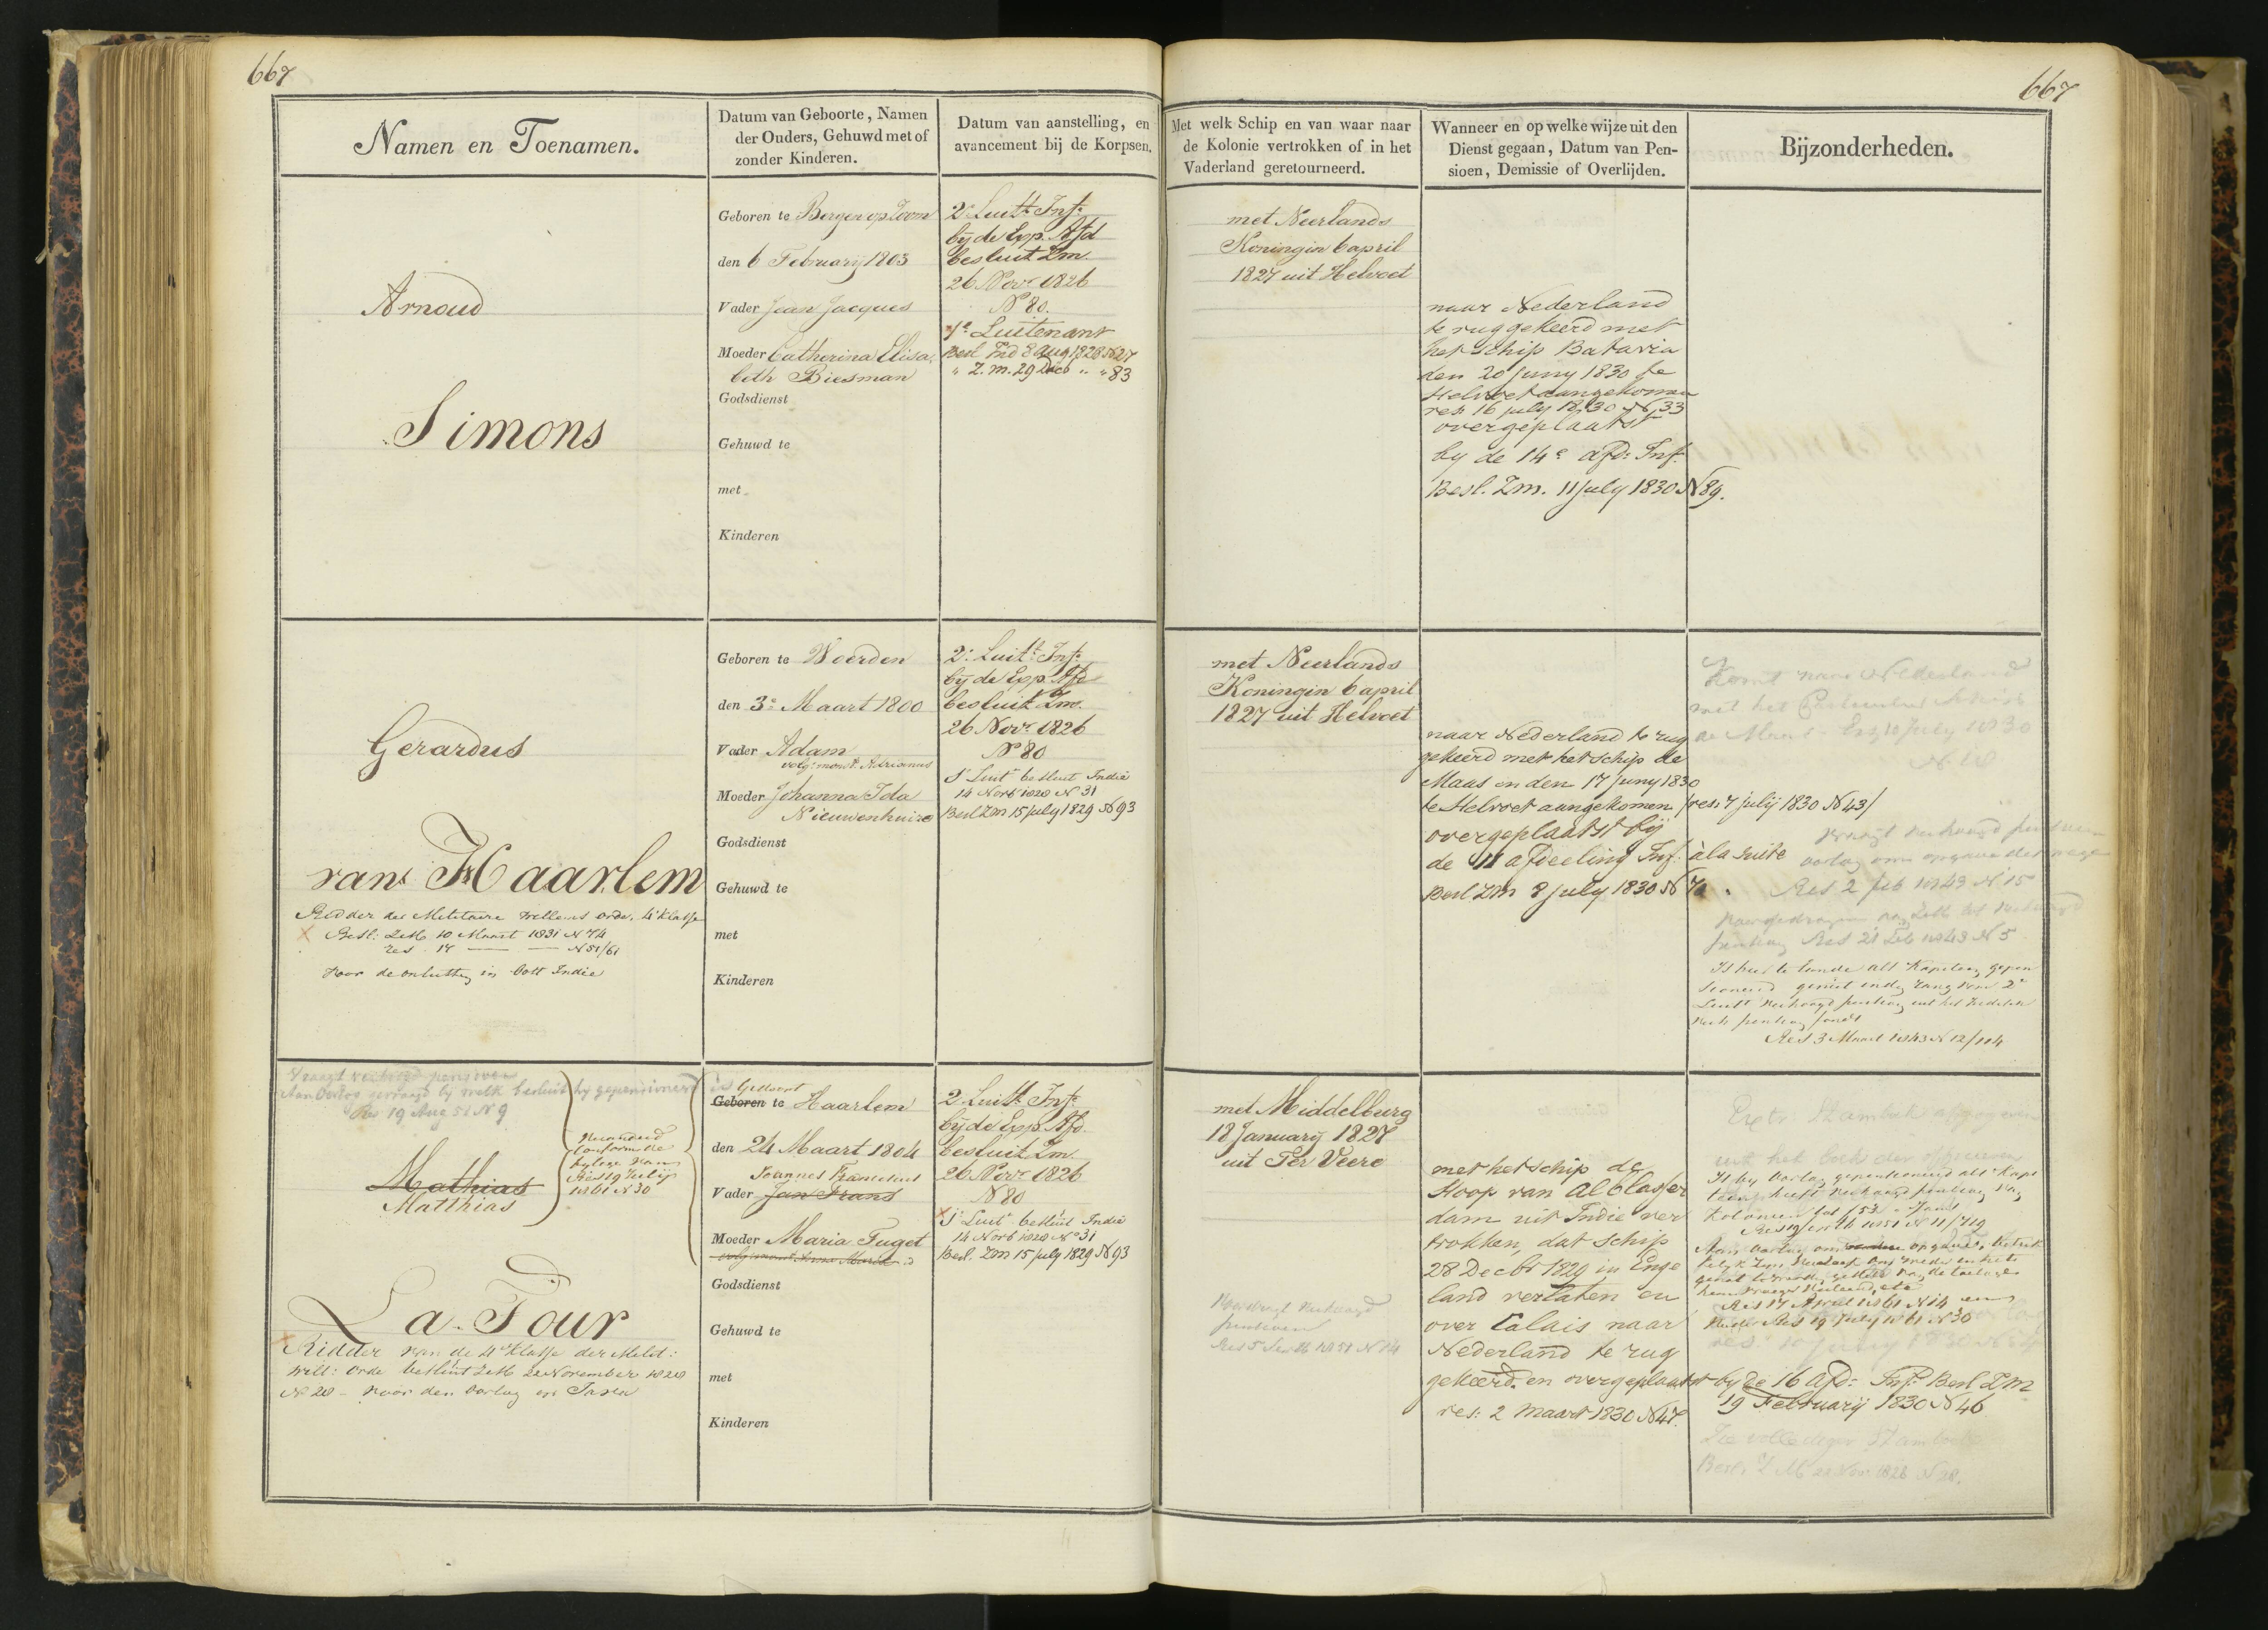 667
667
Namen en Toenamen.
Datum van Geboorte, Namen
der Ouders, Gehuwd met of
zonder Kinderen.
Datum van aanstelling, en
avancement bij de Korpsen.
Met welk Schip en van waar naar
de Kolonie vertrokken of in het
Vaderland geretourneerd.
Wanneer en op welke wijze uit den
Dienst gegaan, Datum van Pen-
sioen, Demissie of Overlijden.
Bijzonderheden.
Arnoud
Simons
Geboren te Bergen op Zoom
den 6 February 1803
Vader Jean Jacques
Moeder Catherina Elisa,
beth Biesman
Godsdienst
Gehuwd te
met
Kinderen
2e Luitt. Inf.
bij de Exp. Afd
besluit Zm
26 Novr 1826
No 80.
1e Luitenant
Besl Ind 8 Aug 1828 N 27
" Z.m. 29 Dec " " 83
met Neerlands
Koningin 6 april
1827 uit Helvoet
naar Nederland
te rug gekeerd met
het schip Batavia
den 20 Juny 1830 te
Helvoet aangekomen
res. 16 july 1830 N 33
overgeplaatst
by de 14e afd: Inf.
Besl. Zm. 11 July 1830 N 89.
Gerardus
van Haarlem
Ridder der Militaire Willems Orde, 4e Klasse
Besl: ZM 10 Maart 1831 N 74
res 17 — — N 51/61
voor de onlusten in Oost Indie
Geboren te Woerden
den 3e Maart 1800
Vader Adam
volgs monst. Adrianus
Moeder Johanna Ida
Nieuwenhuize
Godsdienst
Gehuwd te
met
Kinderen
2e Luitt. Inf.
bij de Exp. Afd
besluit Zm.
26 Novr 1826
No 80
1e Luitt besluit Indie
14 Novb 1828 N 31
Besl Zm 15 july 1829 N 93
met Neerlands
Koningin 6 april
1827 uit Helvoet
naar Nederland te rug
gekeerd met het schip de
Maas en den 17 Juny 1830
te Helvoet aangekomen /res. 7 julij 1830 N 43/
overgeplaatst bij
de 11 afdeeling Inf. à la suite
Besl Zm 8 july 1830 N 70.
Komt naar Nederland
met het
de Maas
Res 2 feb 1843 N 15
Res 21 Feb 1843 N 5
Is hier te lande als Kapitein gepen
sioneerd geniet in den rang van 2e
Luitt verhoogd pensioen uit het Indische
fonds
Res 3 Maart 1843 N 12/114
Vraagt verhoogd pensioen
Aan Oorlog gevraagd by welk besluit hy gepensioneerd is
Res 19 Aug 51 N 9
Veranderd
Conform de
bylage van
Res 19 Julij
1861 N 30
Mathias
Matthias
La Tour
Ridder van de 4e Klasse der Milit:
Will: Orde besluit ZM 22 November 1828
N 28 – voor den Oorlog op Java
Gedoopt
Geboren te Haarlem
den 24 Maart 1804
Joannes Franciscus
Vader Jan Frans
Moeder Maria Fuget
Godsdienst
Gehuwd te
met
Kinderen
2 Luitt. Inf.
bij de Exp. Afd.
besluit Zm
26 Novr 1826
N 80
1e Luitt besluit Indie
14 Novb 1828 No 31
Besl. Zm 15 july 1829 N 93
met Middelburg
18 January 1827
uit Ter Veere
verhoogd
pensioen
met het schip de
Hoop van Alblasser
dam uit Indie ver
trokken, dat schip
28 Decbr 1829 in Enge
land verlaten en
over Calais naar
Nederland te rug
gekeerd. en overgeplaatst by de 16 afd: Inf: Besl Zm
19 February 1830 N 46
res: 2 Maart 1830 N 47.
Extr Stamboek afgegeven
Is by Oorlog gepensioneerd als Kapi
tein, heeft verhoogd pensioen
Res 17 April 1861 N 14
Res 19 July 1861 N 30
Zie vollediger Stamboek
Besl. Z M 22 Nov: 1828 N 28.